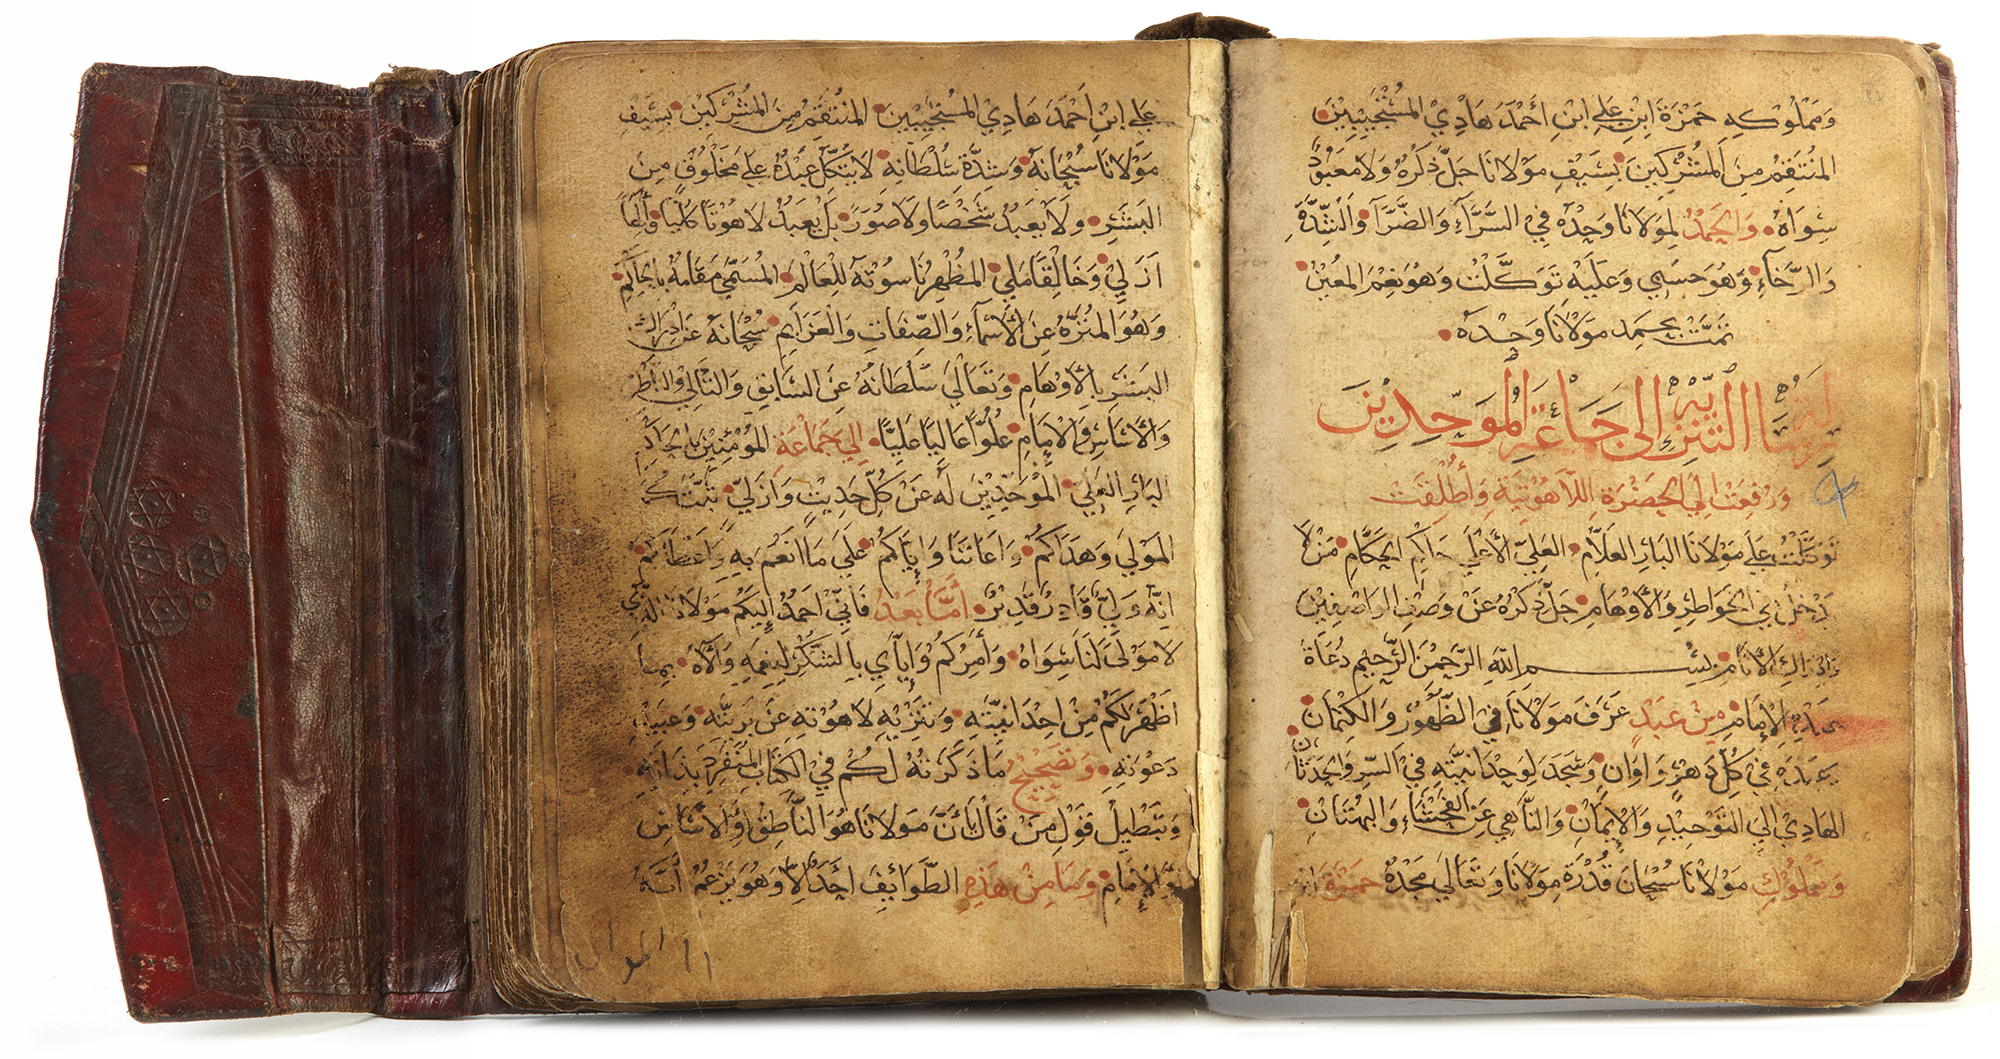 ومملوكه حمزة ابن علي ابن احمد هادي المستجيبين
المنتقم من المشركين بسيف مولانا جل ذكره ولا معبود
سواه والحمد لمولانا وحده في السرآء والضرآ والشدة
والرخآء وهو حسبي وعليه توكلت وهو نعم المعين
تمت بحمد مولانا وحده
رسالة التنزيه الى جماعة الموحدين
ورفعت الي الحضرة اللاهوتية وأطلقت
توكلت علي مولانا البار العلام العلي الأعلي حاكم الحكام من لا
يدخل في الخواطر والأوهام جل ذكره عن وصف الواصفين
وادراك الأنام بسم الله الرحمن الرحيم دعاة
عبده الإمام من عبد عرف مولانا في الظهور والكتمان
وعبده في كل دهر واوان وسجد لوحدانيته في السر والحدثان
الهادي الي التوحيد والإيمان والناهي عن الفحشاء والبهتان
ومملوك مولانا سبحان قدرة مولانا وتعالي مجده حمزة ابن
علي ابن احمد هادي المستجيبين المنتقم من المشركين بسيف
مولانا سبحانه وشدة سلطانه لا يتكل عبده علي مخلوق من
البشر ولا يعبد شخصا ولا صور بل يعبد لاهوتا كليا
ازلي وخالقا ملي المظهر ناسوته للعالم المسمي مقامه بالحاكم
وهو المنزه عن الأسمآء والصفات والعزايم سبحانه عن ادراك
البشر بالأوهام وتعالي سلطانه عن السابق والتالي والناطق
والأساس والإمام علوا عاليا عليا الي جماعة المؤمنين باتحاد
البار العلي الموحدين له عن كل حديث وازلي ثبتكم
المولي وهداكم واعاننا واياكم علي ما انعم به واعطاكم
انه ولي قادر قدير أما بعد فاني احمد إليكم مولانا الذي
لا مولي لنا سواه وأمركم وإياي بالشكر لنعمه وآلآه بما
اظهر لكم من احدانيته وتنزيه لاهوته عن بريته وعجيب
دعوته وتصحيح ما ذكرته لكم في الكتاب المنفرد بذاته
وتبطيل قول من قال بأن مولانا هو الناطق او الأساس
او الإمام وما من هذه الطوايف احد الا وهو يزعم أنه